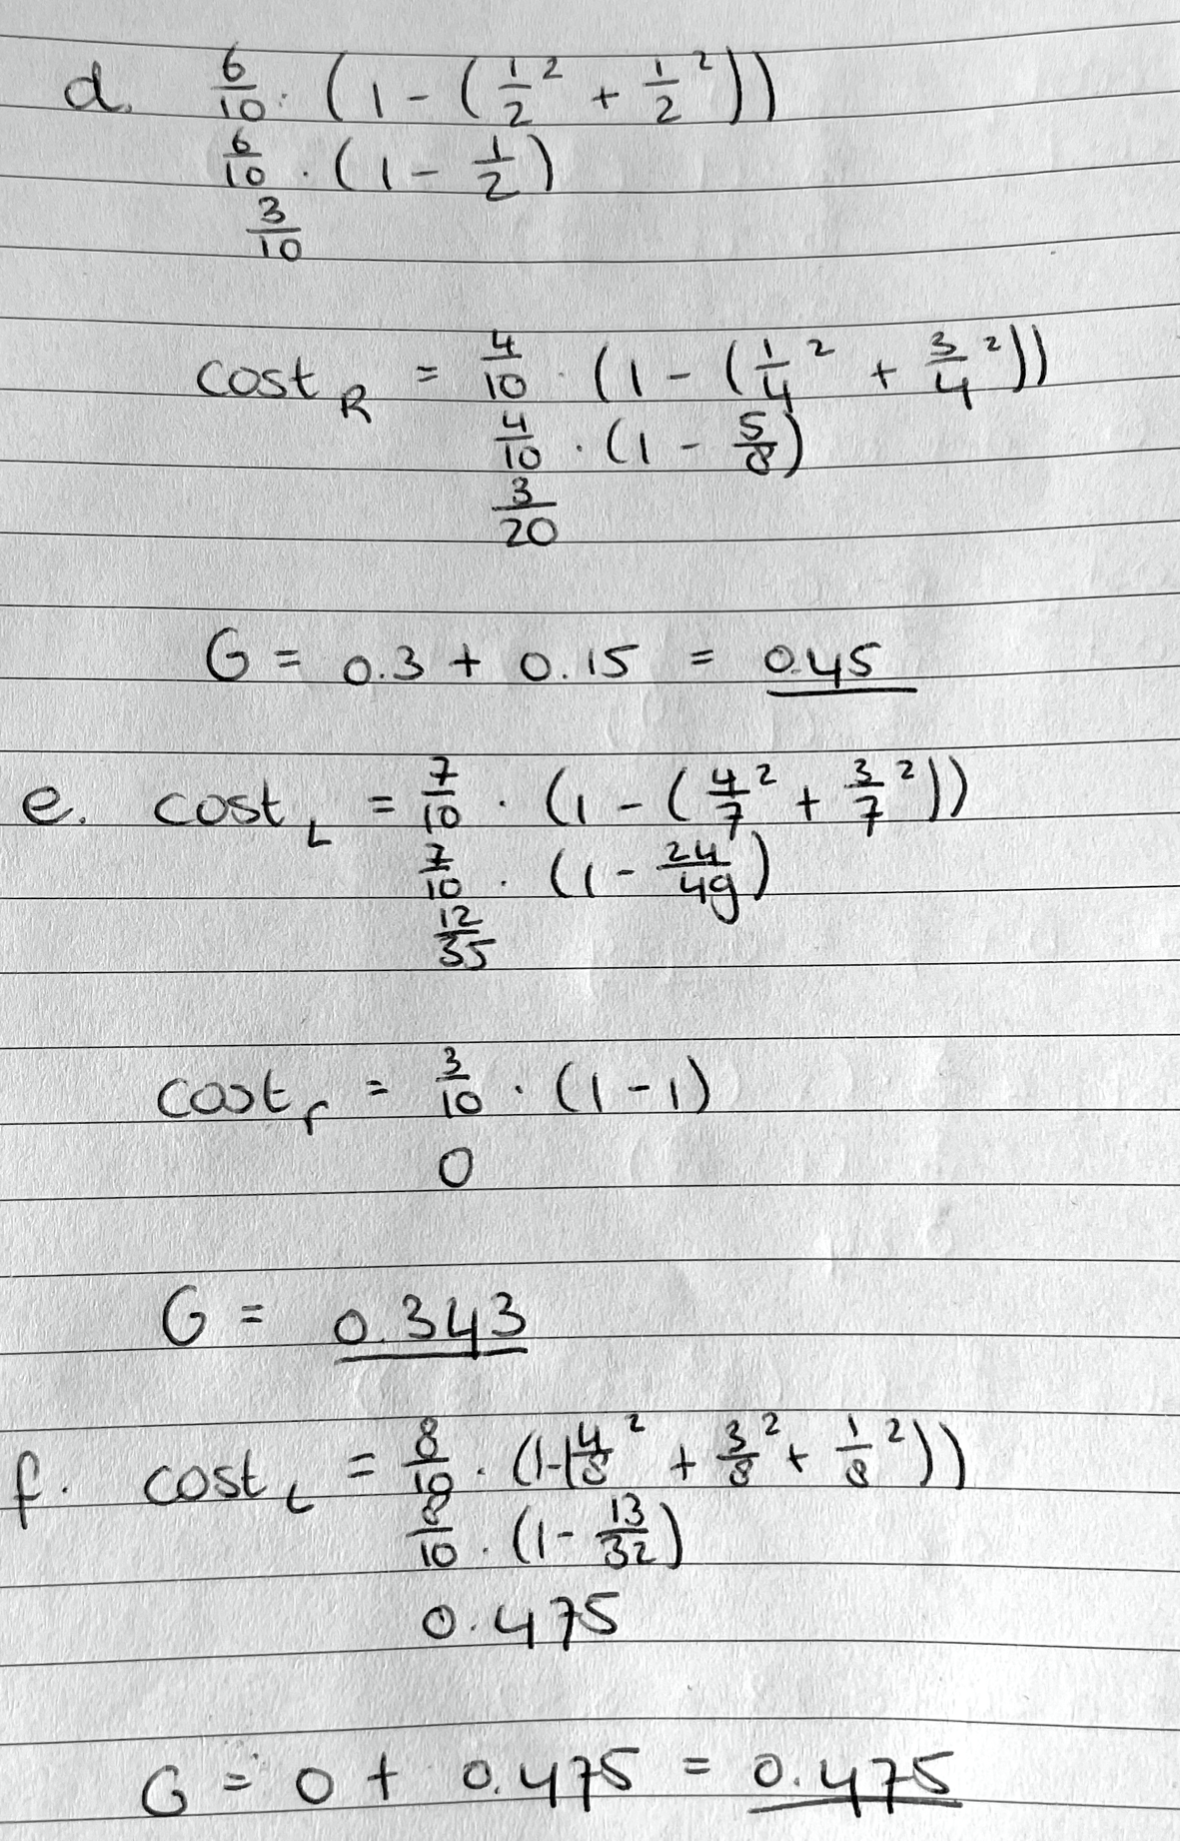 d. 6/10 · (1 - (1/2² + 1/2²))
6/10 · (1 - 1/2)
3/10
cost_R = 4/10 · (1 - (1/4² + 3/4²))
4/10 · (1 - 5/8)
3/20
G = 0.3 + 0.15 = 0.45
e. cost_L = 7/10 · (1 - (4/7² + 3/7²))
7/10 · (1 - 24/49)
12/35
cost_r = 3/10 · (1 - 1)
0
G = 0.343
f. cost_L = 8/10 · (1-(4/8² + 3/8² + 1/8²))
8/10 · (1 - 13/32)
0.475
G = 0 + 0.475 = 0.475